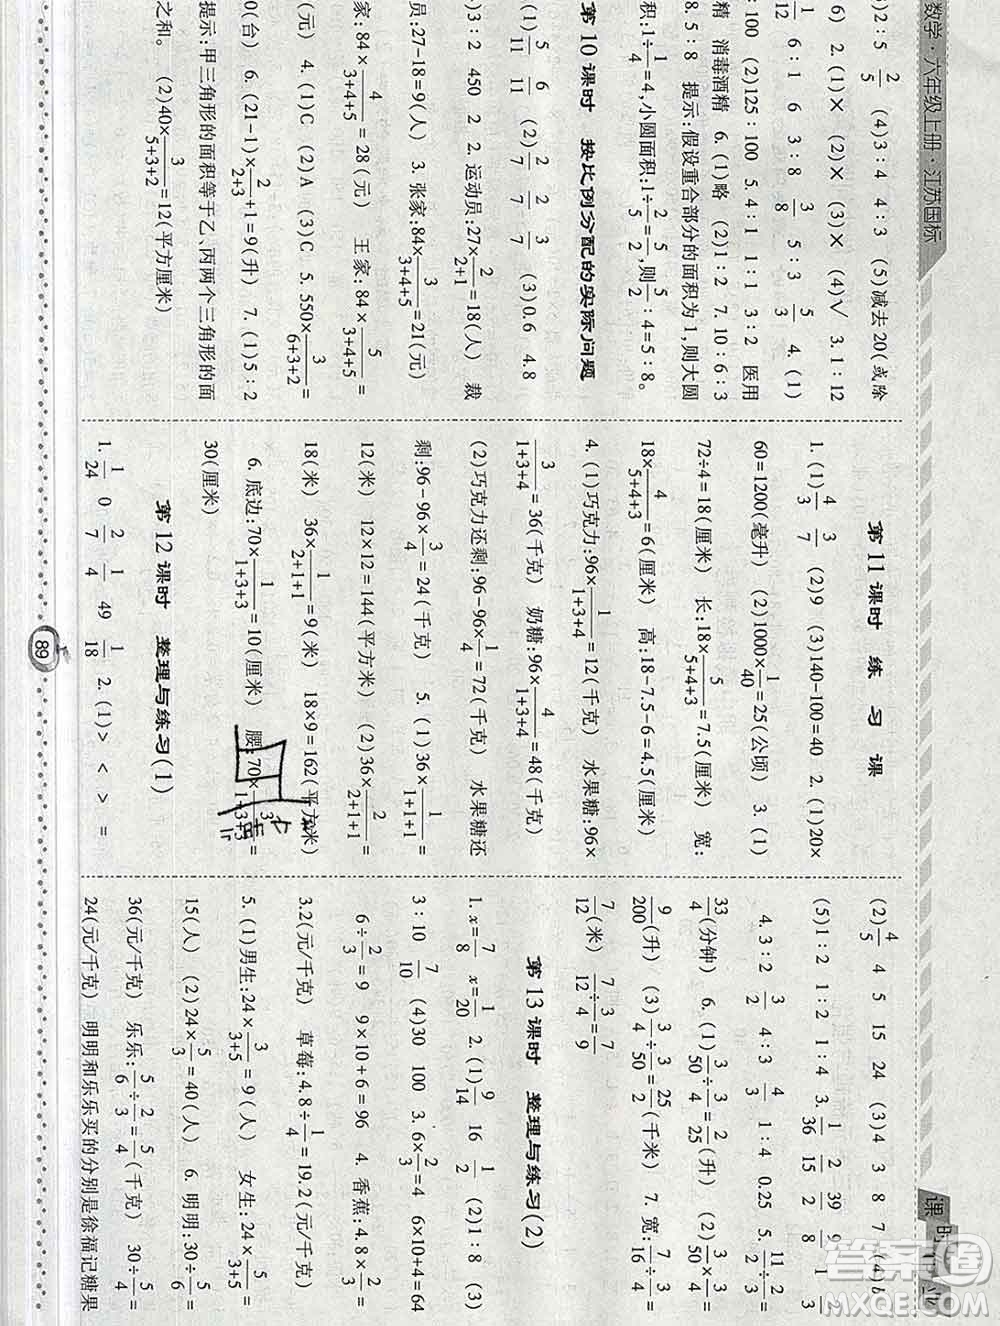 数学·六年级上册·江苏国标
课时作业
2∶5 2/5 (4)3∶4 4∶3 (5)减去20(或除
6) 2.(1)× (2)× (3)× (4)√ 3.1∶12
1/12 6∶1 6 3∶8 3/8 5∶3 5/3 4.(1)
∶100 (2)125∶100 5.4∶1 1∶1 3∶2 医用
精 消毒酒精 6.(1)略 (2)1∶2 7.10∶6∶3
8.5∶8 提示:假设重合部分的面积为1,则大圆
积:1÷1/4=4,小圆面积:1÷2/5=5/2,则5/2∶4=5∶8。
第10课时 按比例分配的实际问题
(1)5/11 6/11 (2)2/7 2/7 3/7 (3)0.6 4.8
3∶2 450 2.运动员:27×2/(2+1)=18(人) 裁
员:27-18=9(人) 3.张家:84×3/(3+4+5)=21(元)
家:84×4/(3+4+5)=28(元) 王家:84×5/(3+4+5)=
(元) 4.(1)C (2)A (3)C 5.550×3/(6+3+2)=
0(台) 6.(21-1)×2/(2+3)+1=9(升) 7.(1)5∶2
提示:甲三角形的面积等于乙、丙两个三角形的面
之和。 (2)40×3/(5+3+2)=12(平方厘米)
第11课时 练习课
1.(1)4/3 3/7 (2)9 (3)140-100=40 2.(1)20×
60=1200(毫升) (2)1000×1/40=25(公顷) 3.(1)
72÷4=18(厘米) 长:18×5/(5+4+3)=7.5(厘米) 宽:
18×4/(5+4+3)=6(厘米) 高:18-7.5-6=4.5(厘米)
4.(1)巧克力:96×1/(1+3+4)=12(千克) 水果糖:96×
3/(1+3+4)=36(千克) 奶糖:96×4/(1+3+4)=48(千克)
(2)巧克力还剩:96-96×1/4=72(千克) 水果糖还
剩:96-96×3/4=24(千克) 5.(1)36×1/(1+1+1)=
12(米) 12×12=144(平方米) (2)36×2/(2+1+1)=
18(米) 36×1/(2+1+1)=9(米) 18×9=162(平方米)
6.底边:70×1/(1+3+3)=10(厘米) 腰:70×3/(1+3+3)=
30(厘米)
第12课时 整理与练习(1)
1.1/24 0 2/7 1/4 49 1/18 2.(1)> < > =
(2)4/5 4 5 15 24 (3)4 3 8 7 (4)b
(5)1∶2 1∶2 1∶4 3.1/36 2/15 39/2 9/8 1 2/3
4.3∶2 3/2 4∶3 4/3 1∶4 0.25 5.11/2÷2/3=
33/4(分钟) 6.(1)3/50÷3/4=2/25(升) (2)3/50×3/4=
9/200(升) (3)3/4÷3/50=25/2(千米) 7.宽:7/16÷3/4=
7/12(米) 7/12÷3/4=7/9
第13课时 整理与练习(2)
1.x=7/8 x=1/20 2.(1)9/14 16 1/2 (2)1∶8 (3)
3∶10 7/10 (4)30 100 3.6×2/3=4 6×10+4=64
6÷2/3=9 9×10+6=96 4.香蕉:4.8×2/3=
3.2(元/千克) 草莓:4.8÷1/4=19.2(元/千克)
5.(1)男生:24×3/(3+5)=9(人) 女生:24×5/(3+5)=
15(人) (2)24×5/3=40(人) 6.明明:30÷5/6=
36(元/千克) 乐乐:5/6÷2/3=5/4(千克) 30÷5/4=
24(元/千克) 明明和乐乐买的分别是徐福记糖果
89
答案圈
MXQE.COM